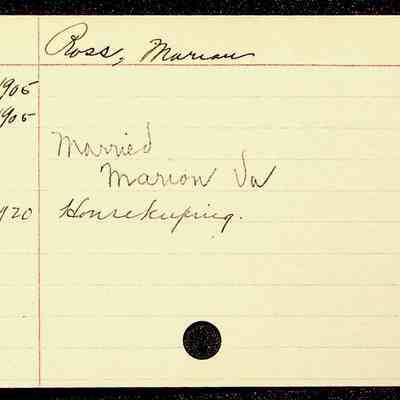 Ross, Marian
1905
1905
Married
Marion Va
1920 Housekeeping.